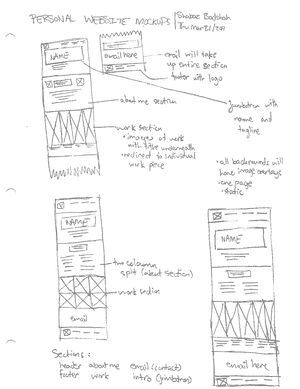 PERSONAL WEBSITE MOCKUPS
NAME
email here
email will take
up entire section
footer with logo
jumbotron with
name and
tagline
about me section
work section
• images of work
with title underneath
• redirect to individual
work piece
• all backgrounds will
have image overlays
• one page
• static
NAME
two column
split (about section)
work section
email
NAME
email here
Sections:
header about me email (contact)
footer work intro (jumbotron)